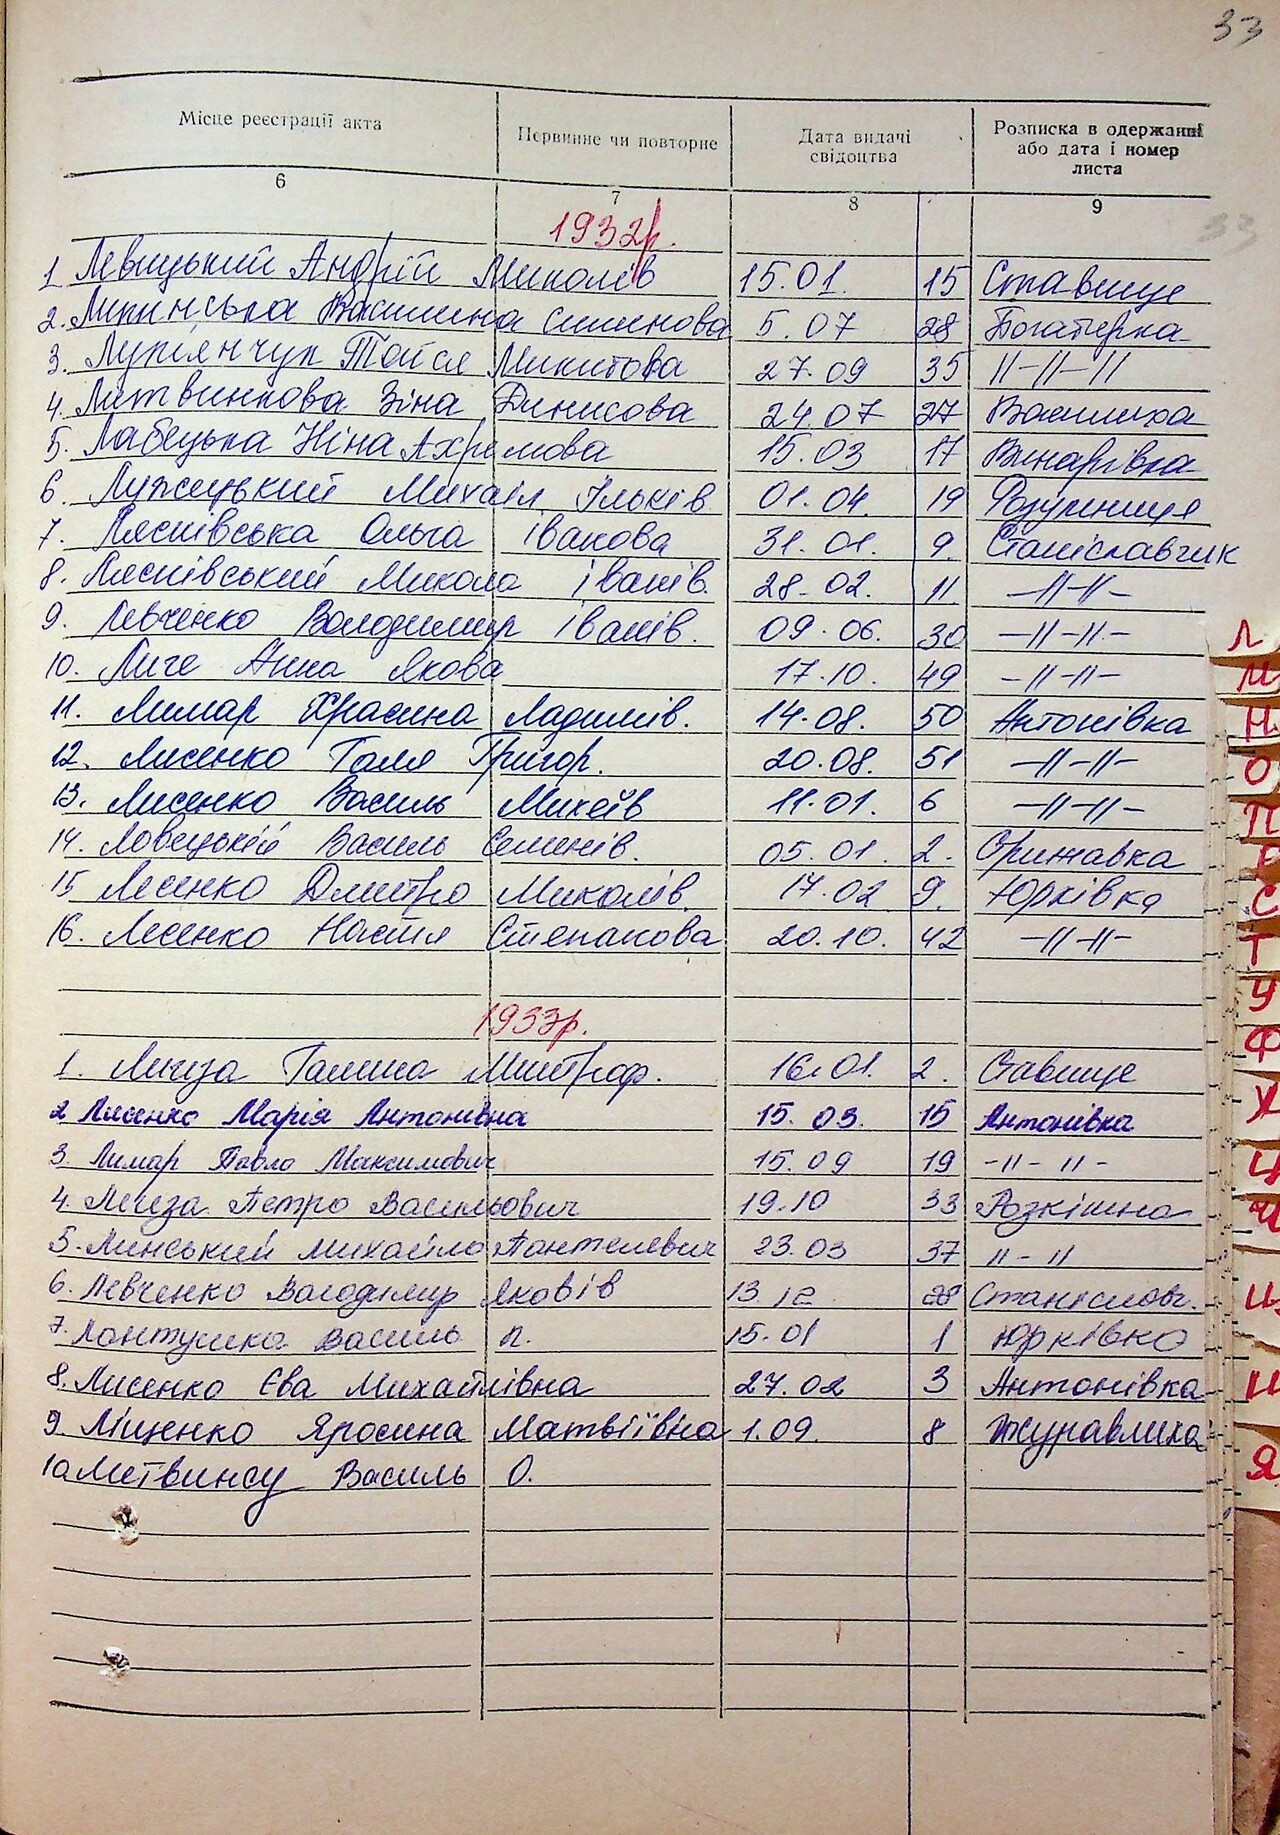 33
Місце реєстрації акта
Первинне чи повторне
Дата видачі
свідоцтва
Розписка в одержанні
або дата і номер
листа
6 7 8 9
33
1932р.
1 Левицький Андрій Миколів 15.01. 15 Ставище
2. Василина Семенова 5.07 28 Богатирка
3. Лукіянчук Тайся Микитова 27.09 35 11-11-11
4. Литвинкова Зіна Динисова 24.07 27 Василиха
5. Лабецька Ніна Ахремова 15.03 17 Винарівка
6. Михаіл Ільків 01.04. 19 Розумниця
7. Лясківська Ольга Івакова 31.01. 9. Станіславчик
8. Лясківський Микола Іванів. 28-02. 11 -11-11-
9. Левченко Володимир Іванів. 09.06. 30 -11-11-
10. Анна Якова 17.10. 49 -11-11-
11. Лимар Храсина Ладимів. 14.08. 50 Антонівка
12. Лисенко Галя Григор. 20.08. 51 -11-11-
13. Лисенко Василь Михеїв 11.01. 6 -11-11-
14. Ловецький Василь Семенів. 05.01. 2. Стрижавка
15 Лесенко Дмитро Миколів. 17.02 9. Юрківка
16. Лесенко Настя Степанова 20.10. 42 -11-11-
1933р.
1. Лигза Галина Митроф. 16.01. 2. Ставище
2 Лисенко Марія Антонівна 15.03. 15 Антонівка
3. Лимар Павло Максимович 15.09 19 -11-11-
4. Петро Васильович 19.10 33 Розкішна
5. Линський Михайло Пантелевич 23.03 37 11-11
6. Левченко Володимир Яковів 13.12 28 Станіславч.
7. Лантушка Василь П. 15.01 1 Юрківка
8. Лисенко Єва Михайлівна 27.02 3 Антонівка
9 Ліщенко Яросина Матвіївна 1.09. 8 Журавлиха
10 Василь О.
Л
М
Н
О
П
Р
С
Т
У
Ф
Х
Ц
Ч
Я